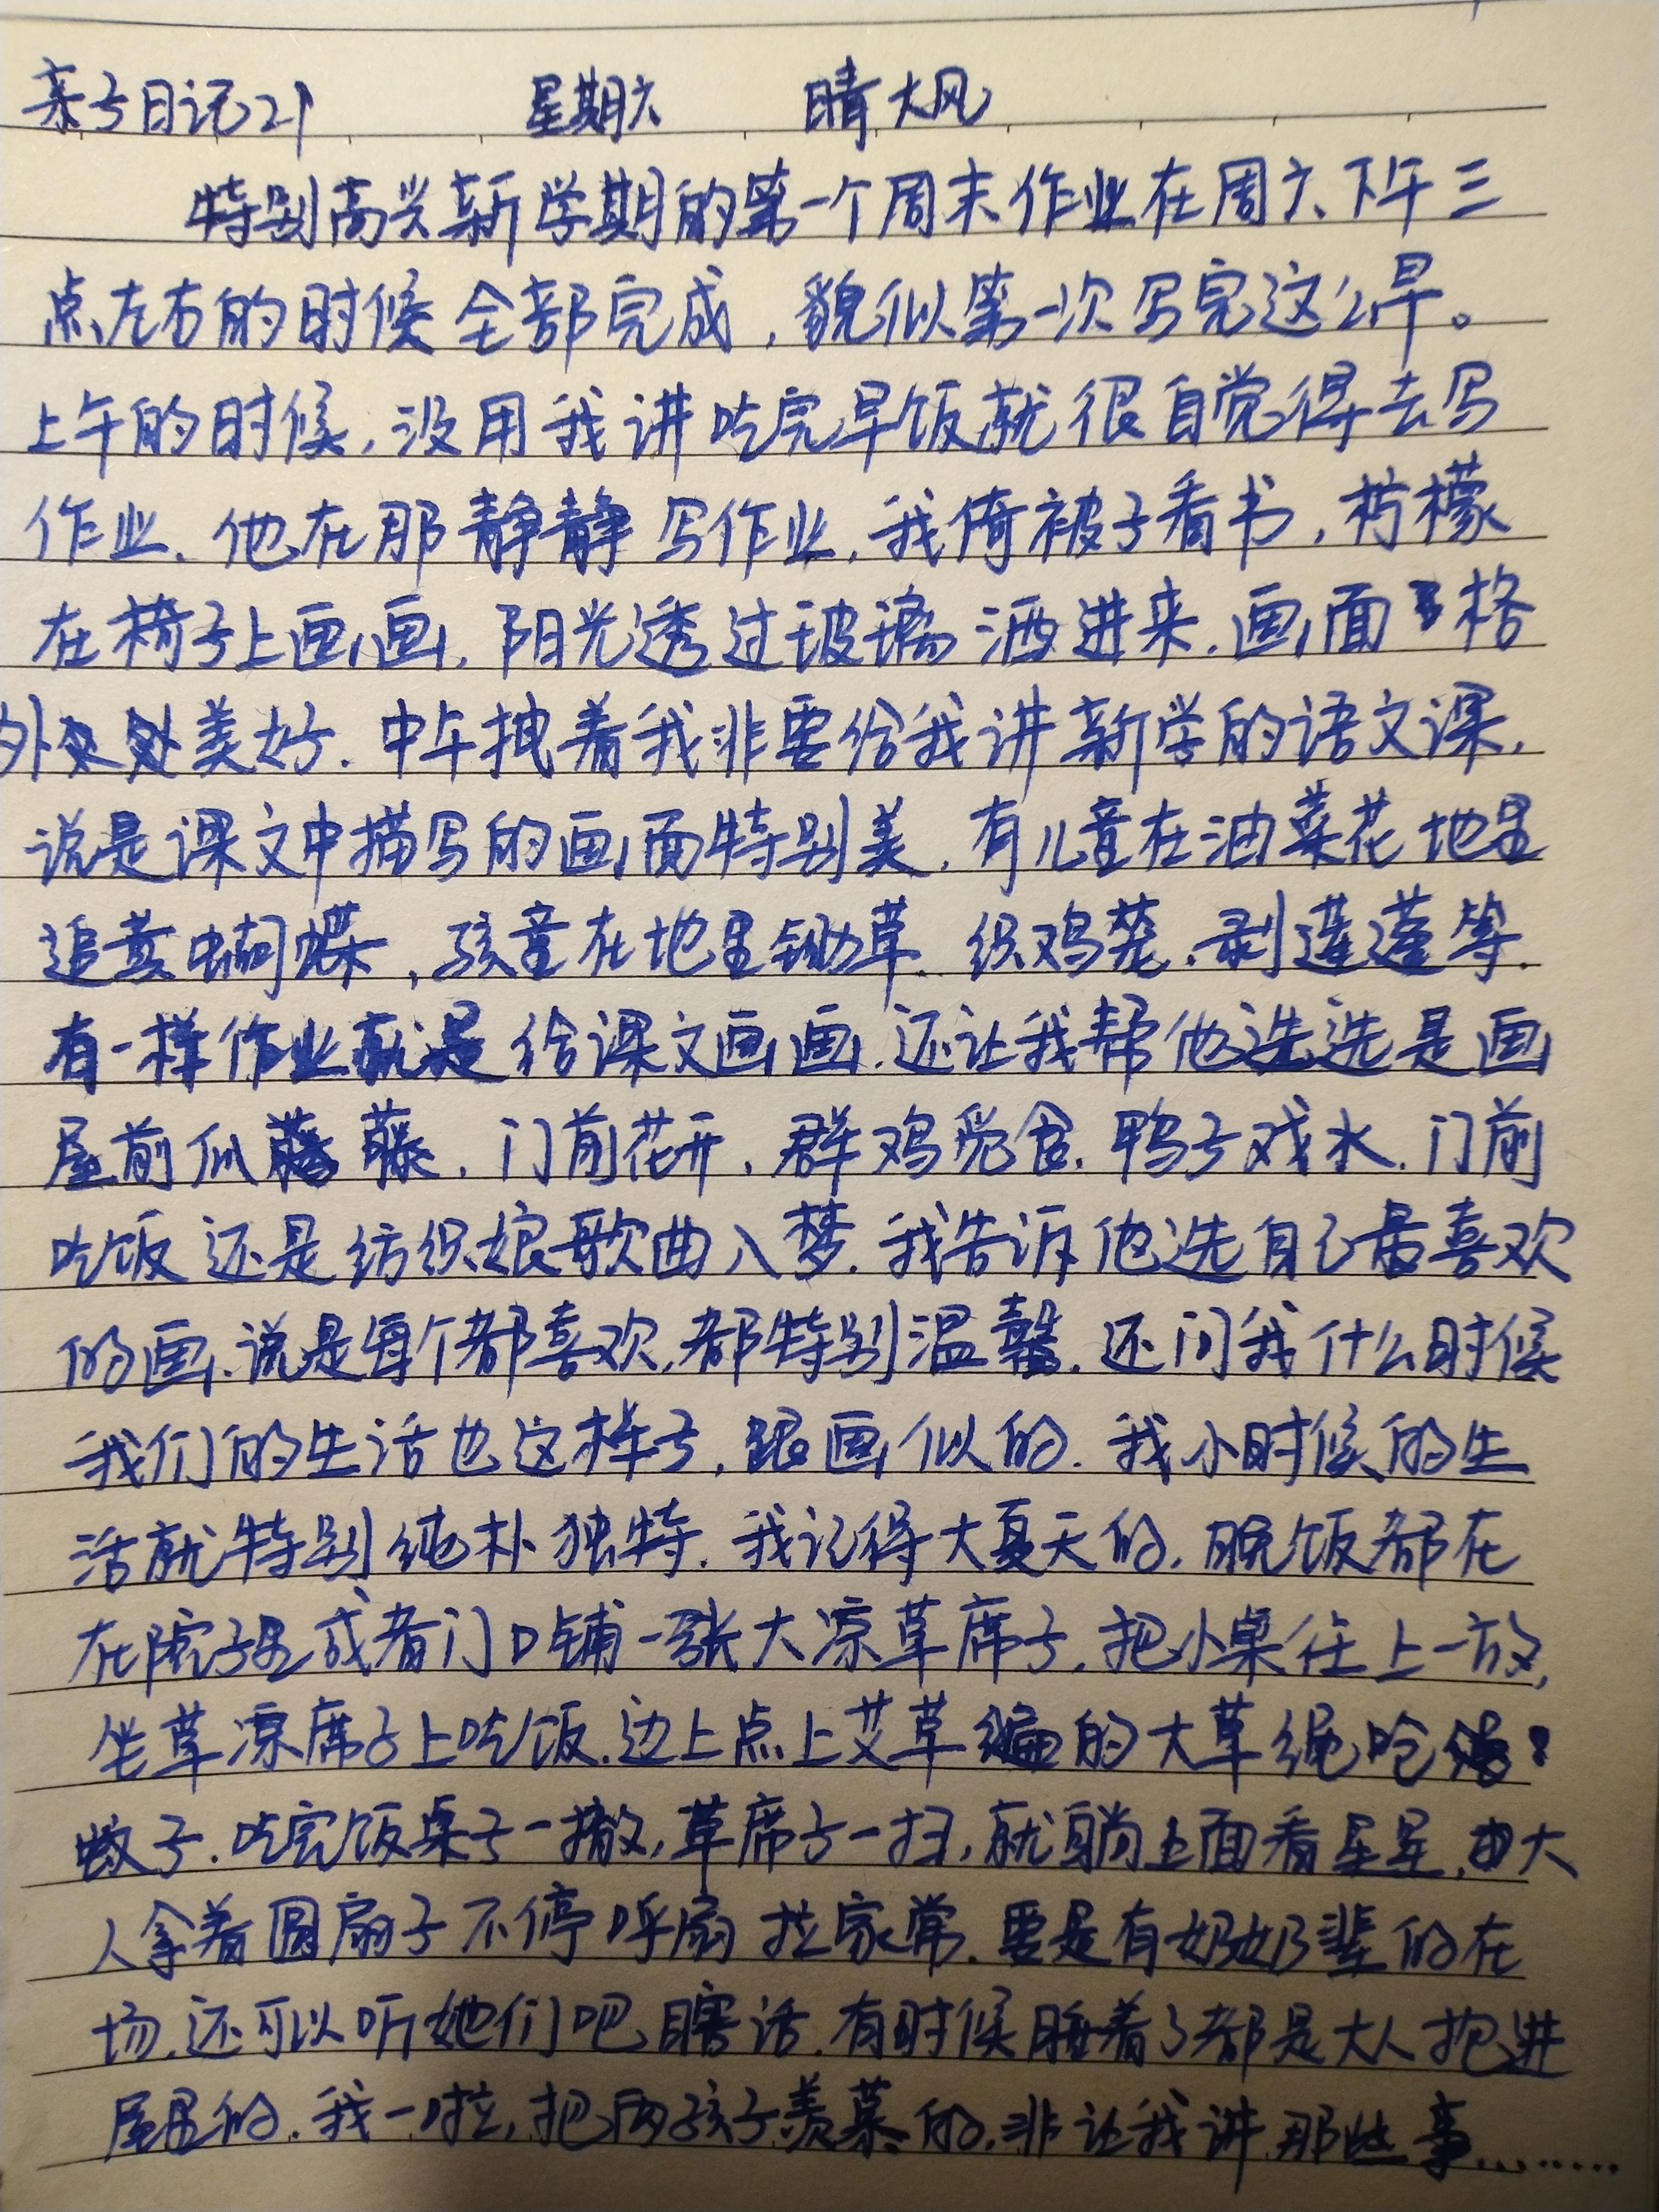 亲子日记21 星期六 晴大风
特别高兴新学期的第一个周末作业在周六下午三
点左右的时候全部完成，貌似第一次写完这么早。
上午的时候，没用我讲吃完早饭就很自觉得去写
作业，他在那静静写作业，我倚被子看书，柠檬
在椅子上画画，阳光透过玻璃洒进来，画面格
外美好。中午拽着我非要给我讲新学的语文课，
说是课文中描写的画面特别美，有儿童在油菜花地里
追黄蝴蝶，孩童在地里锄草、织鸡笼、剥莲蓬等，
有一样作业就是给课文画画，还让我帮他选选是画
屋前瓜藤、门前花开、群鸡觅食、鸭子戏水、门前
吃饭还是纺织娘歌曲入梦。我告诉他选自己最喜欢
的画，说是每个都喜欢，都特别温馨。还问我什么时候
我们的生活也这样子，跟画似的。我小时候的生
活就特别纯朴独特，我记得大夏天的，晚饭都在
在院子里或者门口铺一张大凉草席子，把小桌往上一放，
坐草凉席子上吃饭，边上点上艾草编的大草绳呛
蚊子，吃完饭桌子一撤，草席子一扫，就躺上面看星星，由大
人拿着圆扇子不停呼扇拉家常，要是有奶奶辈的在
场，还可以听她们吧瞎话，有时候睡着了都是大人抱进
屋里的。我一啦，把两孩子羡慕的，非让我讲那些事………